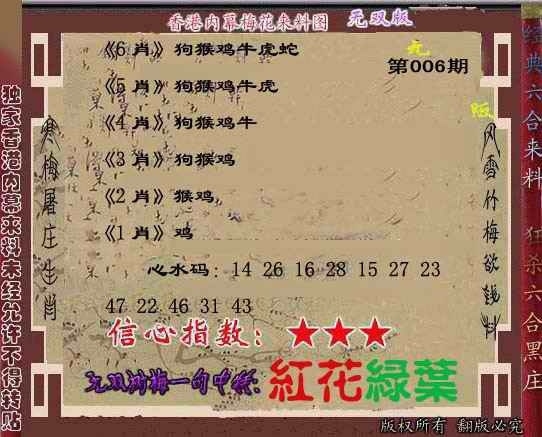 香港内幕梅花来料图 无双版
《6 肖》狗猴鸡牛虎蛇
第006期
《5 肖》狗猴鸡牛虎
《4 肖》狗猴鸡牛
《3 肖》狗猴鸡
《2 肖》猴鸡
《1 肖》鸡
心水码：14 26 16 28 15 27 23
47 22 46 31 43
信心指数：★★★
红花綠葉
独家香港内幕来料未经允许不得转贴
寒梅屠庄生肖
风雪竹梅欲钱料
经典六合来料 狂杀六合黑庄
版权所有 翻版必究